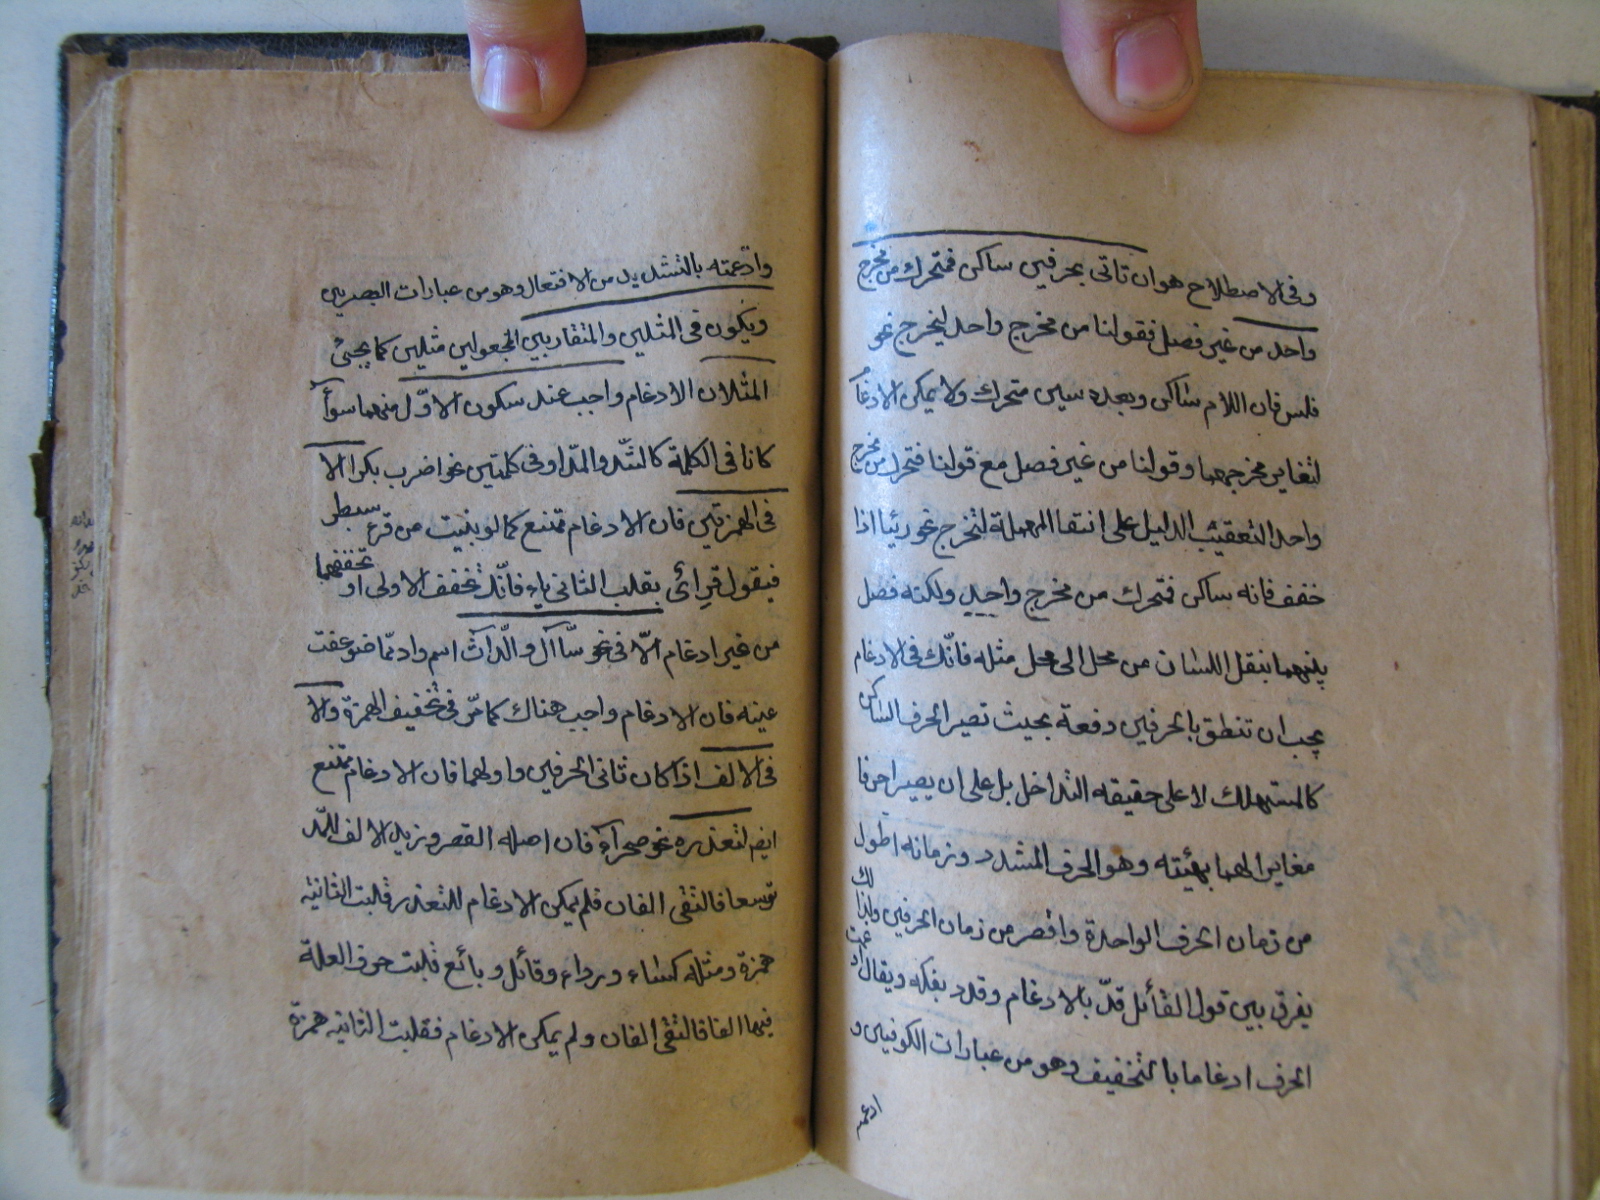 وفى الاصطلاح هو ان تاتى بحرفين ساكن فمتحرك من مخرج
واحد من غير فصل فقولنا من مخرج واحد ليخرج نحو
فلس فان اللام ساكن وبعده سين متحرك ولا يمكن الادغام
لتغاير مخرجهما وقولنا من غير فصل مع قولنا فتحرك من مخرج
واحد التعقيب الدليل على انتفا المهملة لتخرج نحو ريئا اذا
خفف فانه ساكن فمتحرك من مخرج واحد ولكنه فصل
بينهما بنقل اللسان من محل الى محل مثله فانّك فى الادغام
يجب ان تنطق بالحرفين دفعة بحيث تصير الحرف الساكن
كالمستهلك لا على حقيقه التداخل بل على ان يصيرا حرفا
مغايرا لهما بهيئته وهو الحرف المشدد وزمانه اطول
من زمان الحرف الواحدة واقصر من زمان الحرفين ولذلك
يفرق بين قول القائل قدّ بالادغام وقدد بفكه ويقال ادغمت
الحرف ادغاما بالتخفيف وهو من عبارات الكوفيين و
ادغمـ
وادّغمته بالتشديد من الافتعال وهو من عبارات البصريين
ويكون فى المثلين والمتقاربين المجعولين مثلين كما يجيئ
المثلان الادغام واجب عند سكون الاوّل منهما سوآء
كانا فى الكلمة كالشّد والمدّ او فى كلمتين نحو اضرب بكرا الا
فى الهمزتين فان الادغام ممتنع كما لو بنيت من قرء سبطر
فيقول قرأى بقلب الثانى ياء فانّك تخفف الاولى او تخففهما
من غير ادغام الّا فى نحو سّاآل والدّاآث اسم واد ممّا ضوعفت
عينه فان الادغام واجب هناك كما مرّ فى تخفيف الهمزة والا
فى الالف اذا كان ثانى الحرفين واولهما فان الادغام ممتنع
ايضا لتعذره نحو صحرآء فان اصله القصر وزيد الالف للمدّ
توسعا فالتقى الفان فلم يمكن الادغام للتعذر قلبت الثانيه
همزة ومثله كساء ورداء وقائل وبائع قلبت حرف العلة
فيها الفا فالتقى الفان ولم يمكن الادغام فقلبت الثانيه همزة